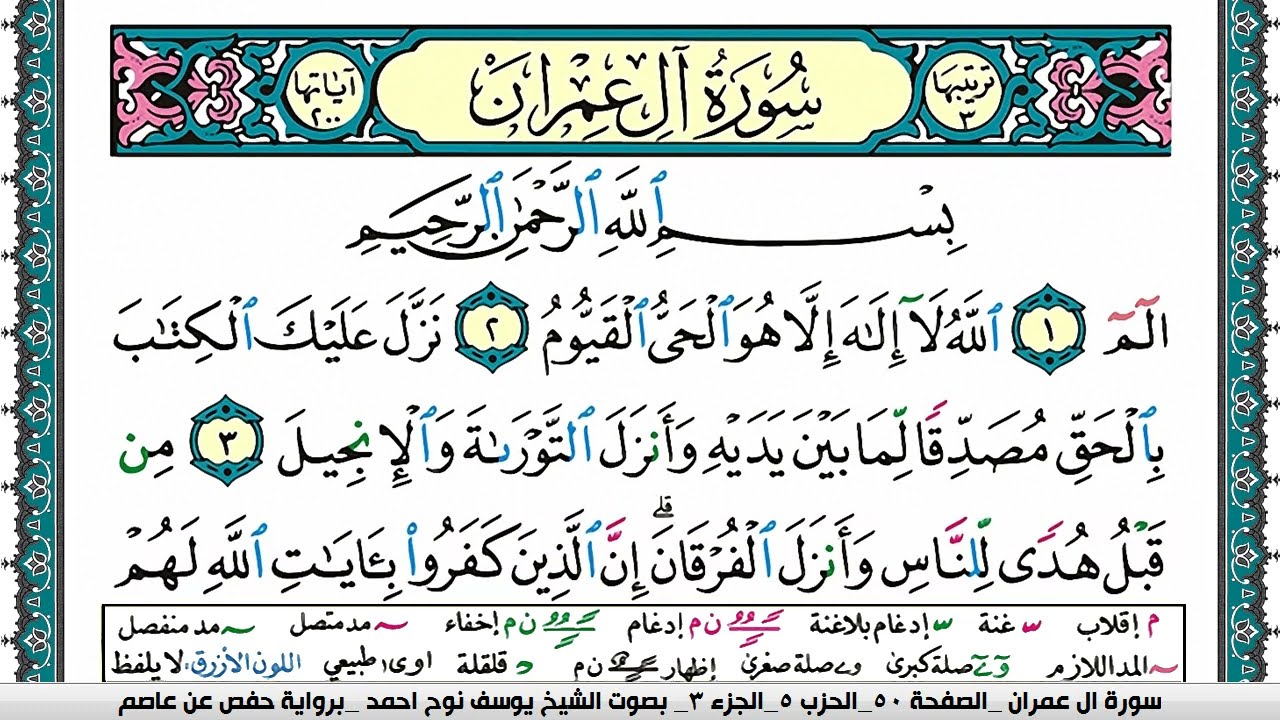 ترتيبها ٣ سُورَةُ آلِ عِمْرَانَ آياتها ٢٠٠
بِسْمِ ٱللَّهِ ٱلرَّحْمَٰنِ ٱلرَّحِيمِ
الٓمٓ ١ ٱللَّهُ لَآ إِلَٰهَ إِلَّا هُوَ ٱلْحَىُّ ٱلْقَيُّومُ ٢ نَزَّلَ عَلَيْكَ ٱلْكِتَٰبَ
بِٱلْحَقِّ مُصَدِّقًا لِّمَا بَيْنَ يَدَيْهِ وَأَنزَلَ ٱلتَّوْرَىٰةَ وَٱلْإِنجِيلَ ٣ مِن
قَبْلُ هُدًى لِّلنَّاسِ وَأَنزَلَ ٱلْفُرْقَانَ ۗ إِنَّ ٱلَّذِينَ كَفَرُوا۟ بِـَٔايَٰتِ ٱللَّهِ لَهُمْ
م إقلاب غنة إدغام بلاغنة ن م إدغام ن م إخفاء مد متصل مد منفصل
المد اللازم صلة كبرى صلة صغرى إظهار ن م قلقلة اوى طبيعي اللون الأزرق: لا يلفظ
سورة ال عمران _الصفحة ٥٠_الحزب ٥_الجزء ٣_ بصوت الشيخ يوسف نوح احمد _برواية حفص عن عاصم